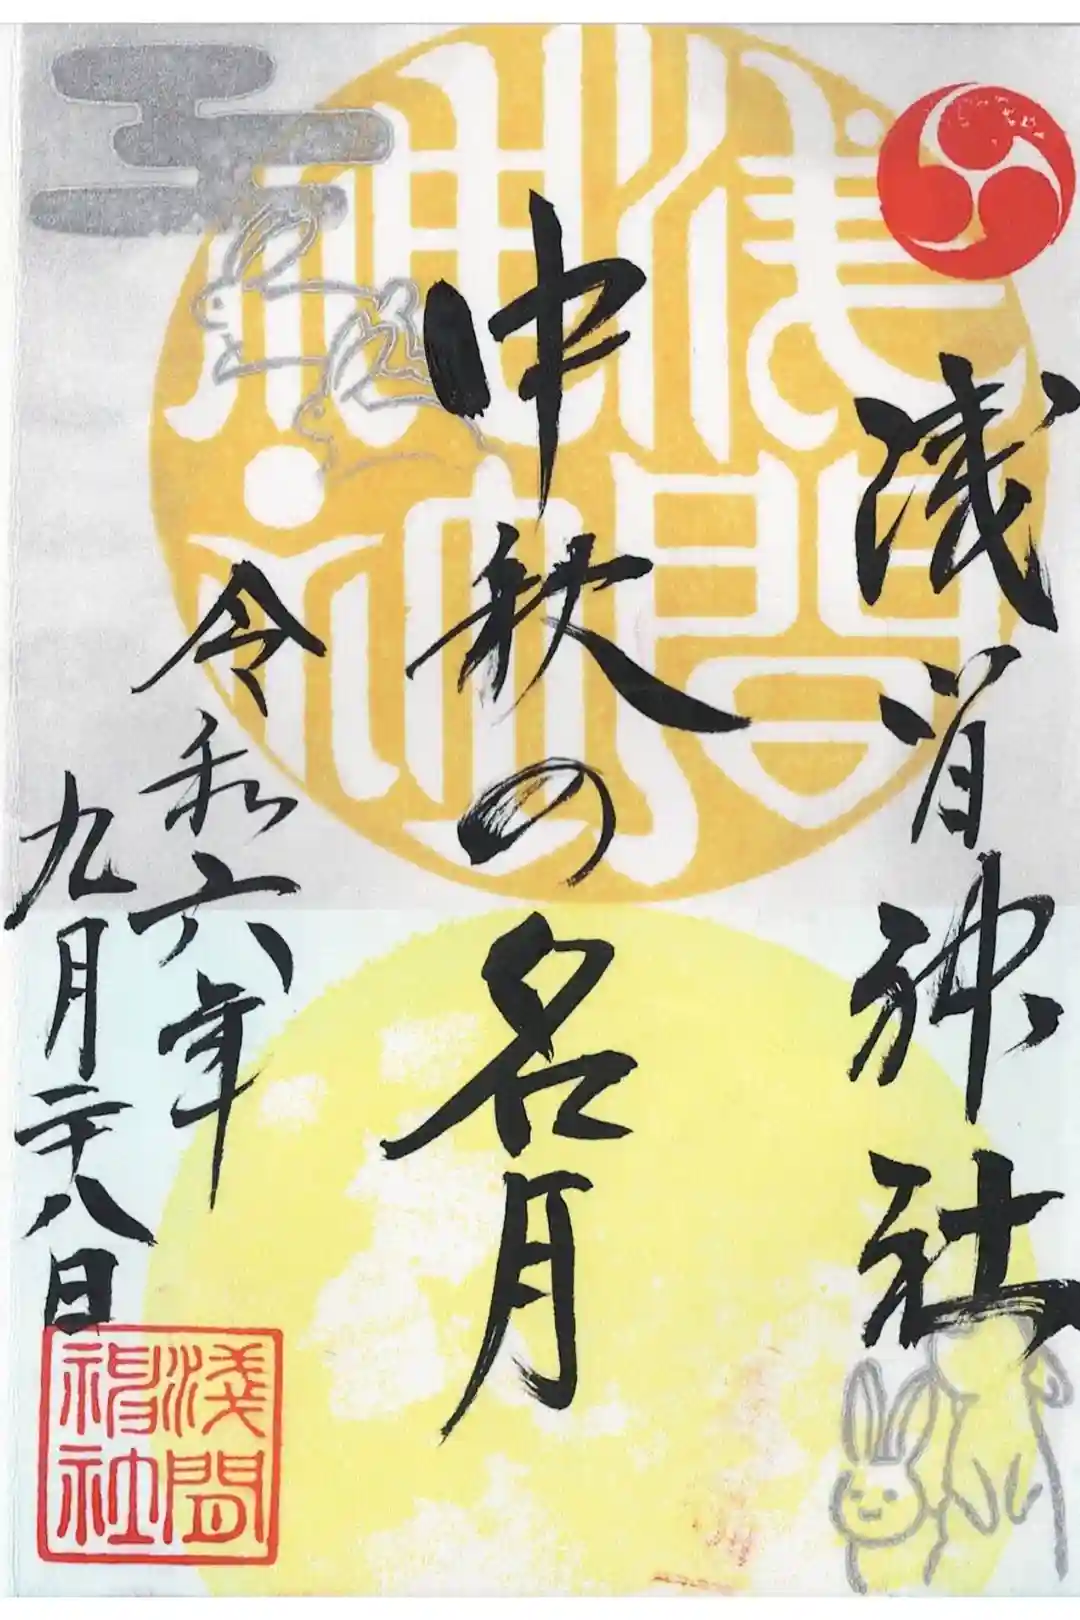 浅間神社
中秋の名月
令和六年
九月二十八日
浅間神社
淺間神社